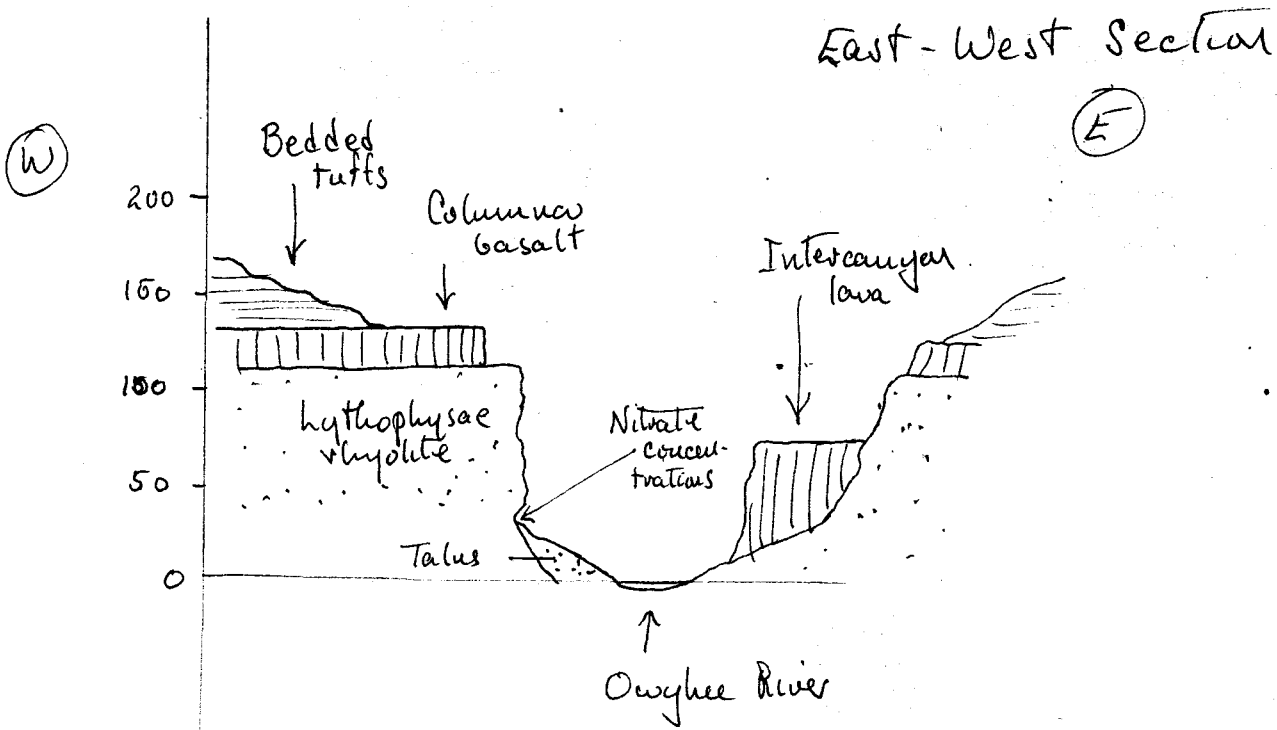 East-West Section
W
E
Bedded
tuffs
Columnar
basalt
Intercanyon
lava
200
150
100
50
0
Lythophysae
rhyolite
Nitrate
concen-
trations
Talus
Owyhee River